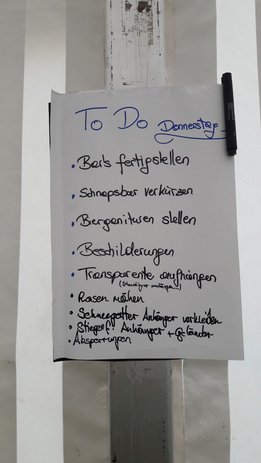 To Do Donnerstag
• Bar's fertigstellen
• Schnapsbar verkürzen
• Biergarnituren stellen
• Beschilderungen
• Transparente aufhängen
• Rasen mähen
• Schneegatter Anhänger verkleiden
• Stiegerl Anhänger + Geländer
• Absperrungen